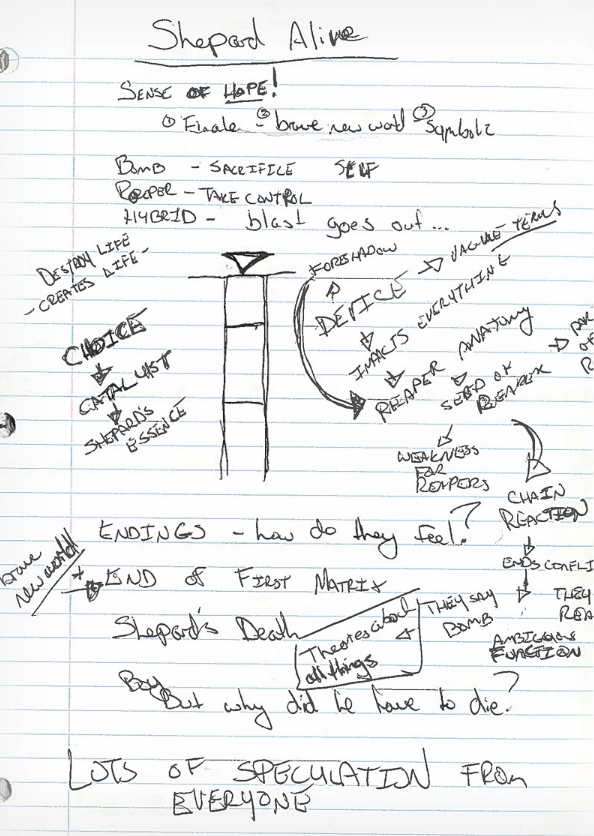 Shepard Alive
SENSE OF HOPE!
① Finale - ② brave new world ③ Symbolz
BOMB - SACRIFICE SELF
REAPER - TAKE CONTROL
HYBRID - blast goes out...
DESTROY LIFE
- CREATES LIFE -
CHOICE
CATALYST
SHEPARD'S
ESSENCE
FORSHADOW
DEVICE
VAGUE TERMS
IMPACTS EVERYTHING
REAPER ANATOMY
SEED OF
REAPER
WEAKNESS
FOR
REAPERS
CHAIN
REACTION
ENDS CONFLI
AMBIGUOUS
FUNCTION
THEY
REA
ENDINGS - how do they feel?
brave
new world!
* END OF FIRST MATRIX
Shepard's Death
Theories about
all things
THEY SAY
BOMB
Boy
But why did he have to die?
LOTS OF SPECULATION FROM
EVERYONE